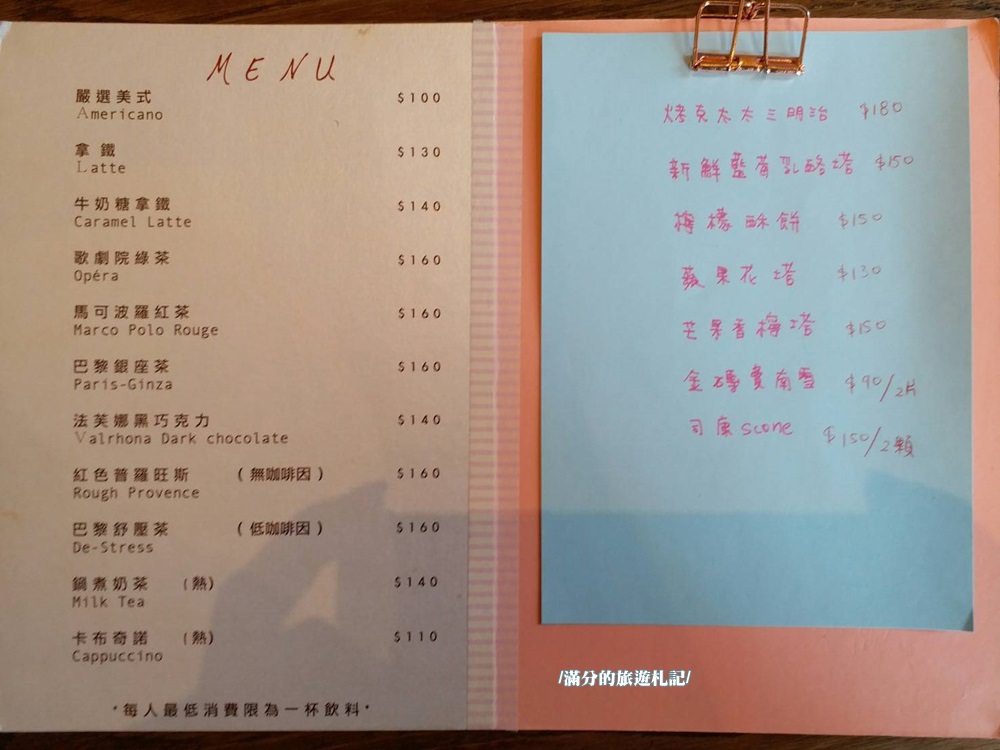 MENU
嚴選美式 $100
Americano
拿鐵 $130
Latte
牛奶糖拿鐵 $140
Caramel Latte
歌劇院綠茶 $160
Opéra
馬可波羅紅茶 $160
Marco Polo Rouge
巴黎銀座茶 $160
Paris-Ginza
法芙娜黑巧克力 $140
Valrhona Dark chocolate
紅色普羅旺斯 (無咖啡因) $160
Rough Provence
巴黎舒壓茶 (低咖啡因) $160
De-Stress
鍋煮奶茶 (熱) $140
Milk Tea
卡布奇諾 (熱) $110
Cappuccino
*每人最低消費限為一杯飲料*
烤克太太三明治 $180
新鮮藍莓乳酪塔 $150
檸檬酥餅 $150
蘋果花塔 $130
芒果香檸塔 $150
金磚費南雪 $90/2片
司康scone $150/2顆
/滿分的旅遊札記/